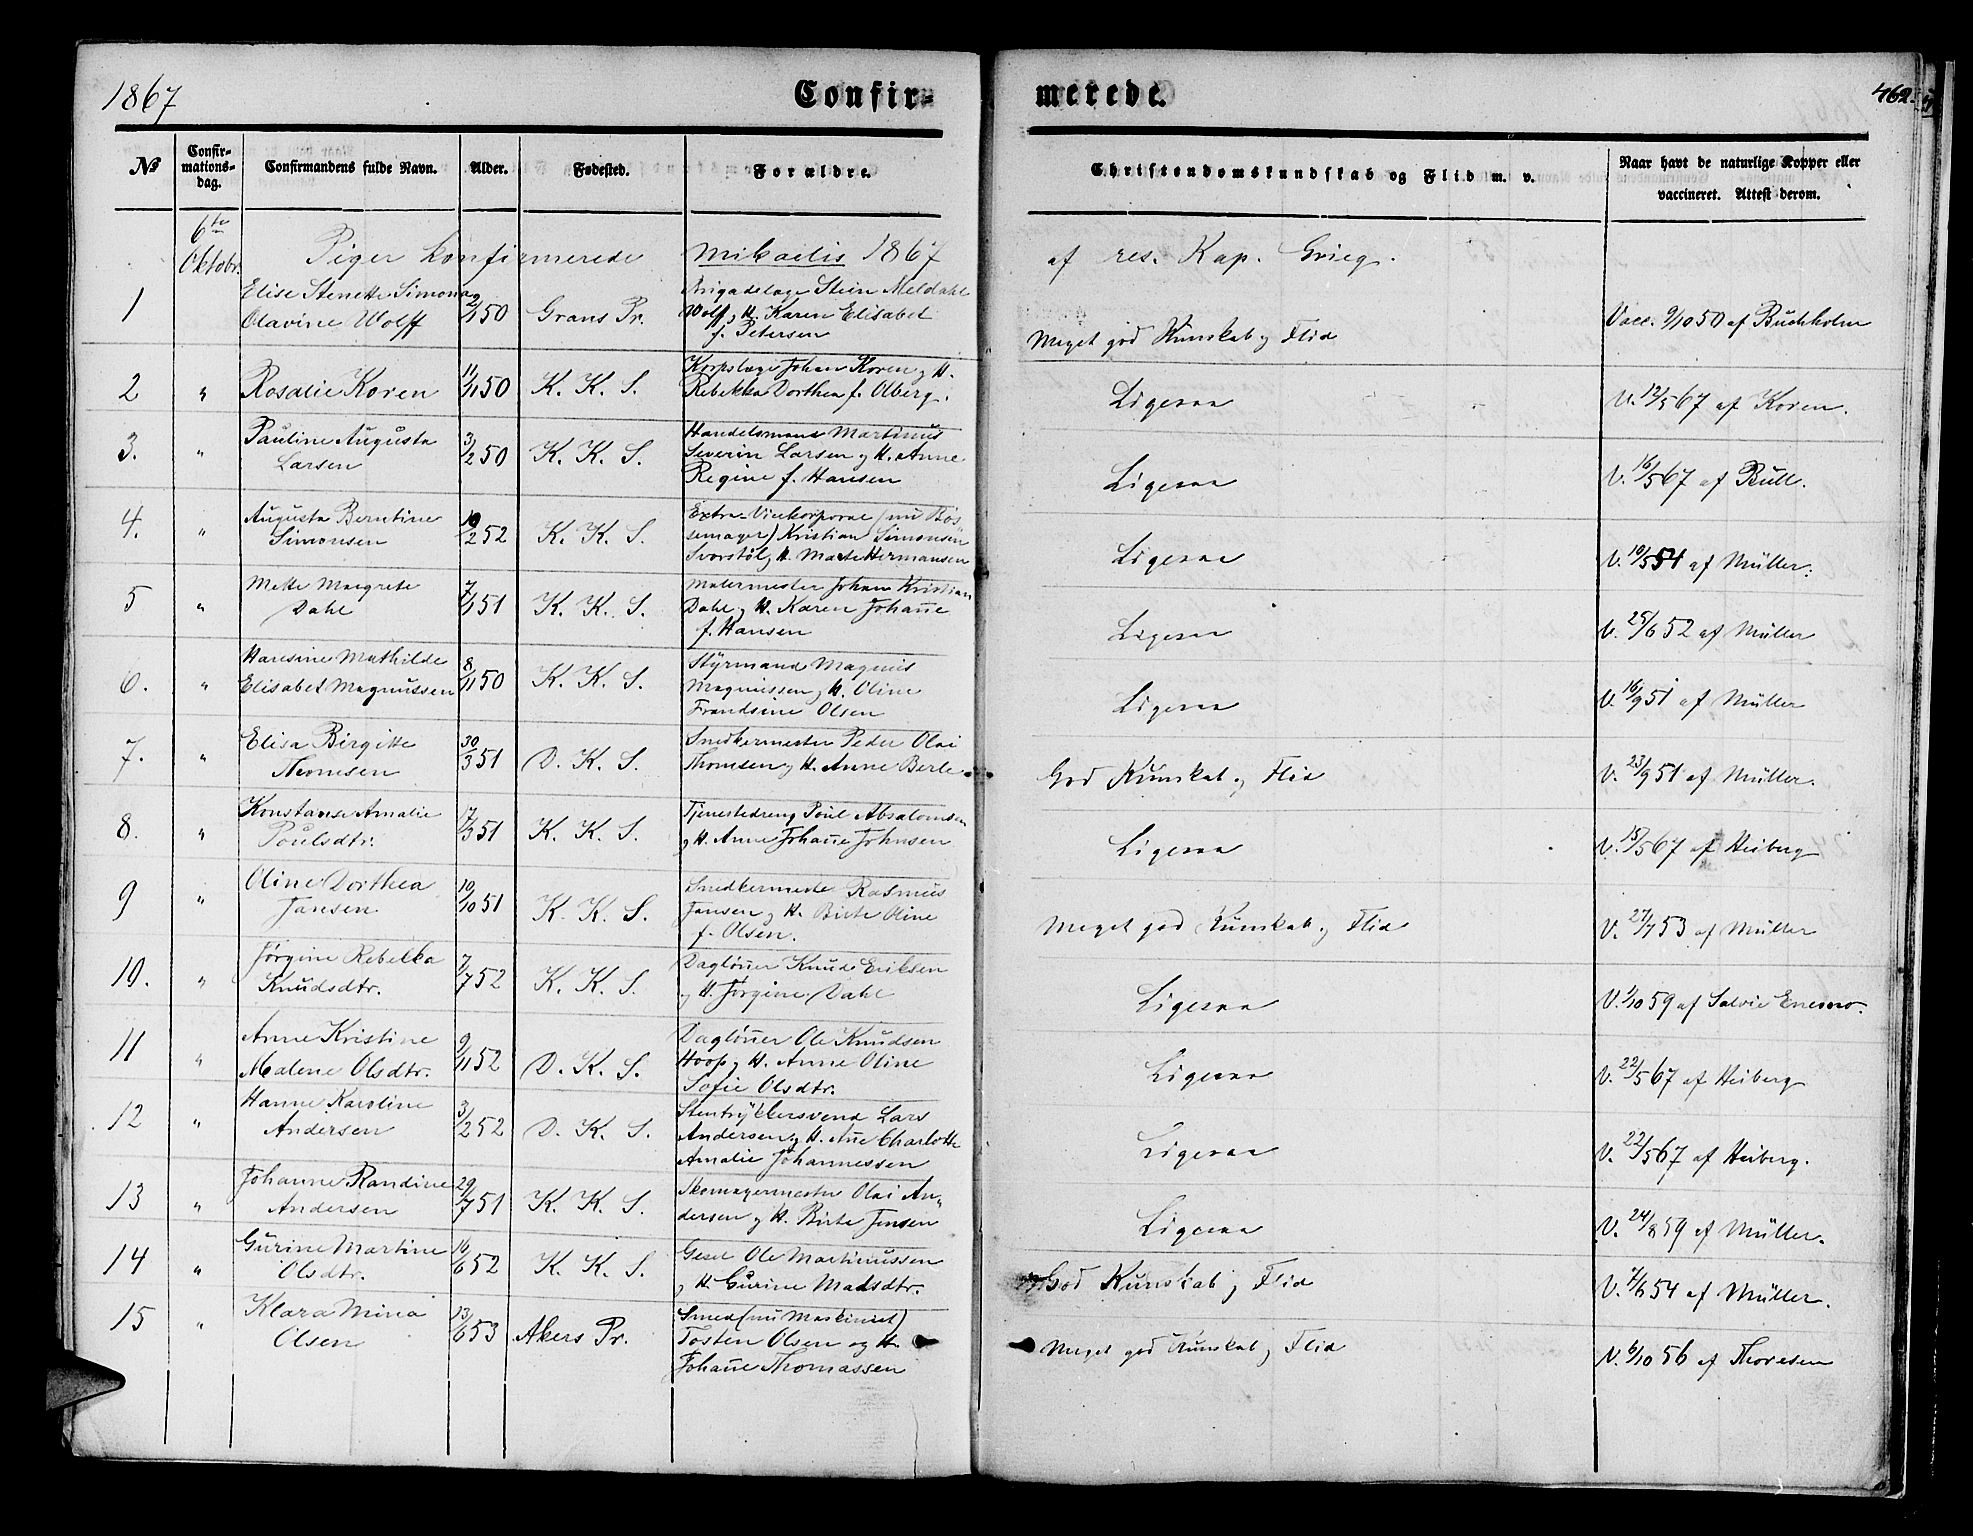 1867
Confir-
merede.
462.
No
Confir-
mations-
dag.
Confirmandens fulde Navn.
Alder.
Fødested.
Forældre.
Christendomskundskab og Flid m. v.
Naar havt de naturlige Kopper eller
vaccineret. Attest derom.
6te
Oktobr. Piger konfirmerede Mikaelis 1867 af res. Kap. Grieg.
1
Elise Stenette Simona
Olavine Wolff
Grans Pr.
Brigadelæge Stein Meldahl
Wolf og H. Karen Elisabet
f. Petersen
Meget god Kunskab og Flid
Vacc. 9/10 50 af Buchholm
2 „ Rosalie Koren 11/11 50 K. K. S.
Korpslæge Johan Koren og H.
Rebekka Dorthea f. Olberg.
Ligesaa
V. 12/5 67 af Koren.
3. „
Pauline Augusta
Larsen
3/2 50 K. K. S.
Handelsmand Martinus
Severin Larsen og H. Anne
Regine f. Hansen
Ligesaa
V. 16/5 67 af Bull.
4. „
Augusta Berntine
Simonsen
10/2 52 K. K. S.
Extra-Vicekorporal (nu Bøs-
semager) Kristian Simonsen
Svorstøl og H. Marte Hermansen
Ligesaa
V. 10/5 54 af Müller.
5 „
Mette Margrete
Dahl
7/1 51 K. K. S.
Malermester Johan Kristian
Dahl og H. Karen Johanne
f. Hansen
Ligesaa
V. 25/6 52 af Müller
6. „
Hansine Mathilde
Elisabet Magnussen
8/11 50 K. K. S.
Styrmand Magnus
Magnussen og H. Oline
Frandsine Olsen
Ligesaa
V. 16/9 51 af Müller
7. „
Elisa Birgitte
Thomsen
30/3 51 D. K. S.
Snedkermester Peder Olai
Thomsen og H. Anne Berle
God Kunskab og Flid
V. 23/9 51 af Müller.
8. „
Konstanse Amalie
Poulsdtr.
17/3 51 K. K. S.
Tjenestedreng Poul Absalomsen
og H. Anne Johanne Johnsen
Ligesaa
V. 15/5 67 af Heiberg
9 „
Oline Dorthea
Jansen
10/10 51 K. K. S.
Snedkermeste Rasmus
Jansen og H. Birte Oline
f. Olsen.
Meget god Kunskab og Flid
V. 27/7 53 af Müller
10. „
Jørgine Rebekka
Knudsdtr.
7/7 52 K. K. S.
Dagløner Knud Eriksen
og H. Jørgine Dahl
Ligesaa
V. 1/10 59 af Salvie Enesmo.
11 „
Anne Kristine
Malene Olsdtr.
9/11 52 D. K. S.
Dagløner Ole Knudsen
Hoop og H. Anne Oline
Sofie Olsdtr.
Ligesaa
V. 22/5 67 af Heiberg
12 „
Hanne Karoline
Andersen
3/2 52 D. K. S.
Stentrykkersvend Lars
Andersen og H. Ane Charlotte
Amalie Johannessen
Ligesaa
V. 22/5 67 af Heiberg.
13 „
Johanne Randine
Andersen
29/7 51 K. K. S.
Skomagermester Olai An-
dersen og H. Birte Jensen
Ligesaa
V. 24/8 59 af Müller.
14 „
Gurine Martine
Olsdtr.
16/6 52 K. K. S.
Gesel Ole Martinussen
og H. Gurine Madsdtr.
God Kunskab og Flid
V. 7/6 54 af Müller.
15 „
Klara Mina
Olsen
13/6 53 Akers Pr.
Smed (nu Maskinist)
Tosten Olsen og H.
Johanne Thomassen
Meget god Kunskab og Flid
V. 6/10 56 af Thoresen